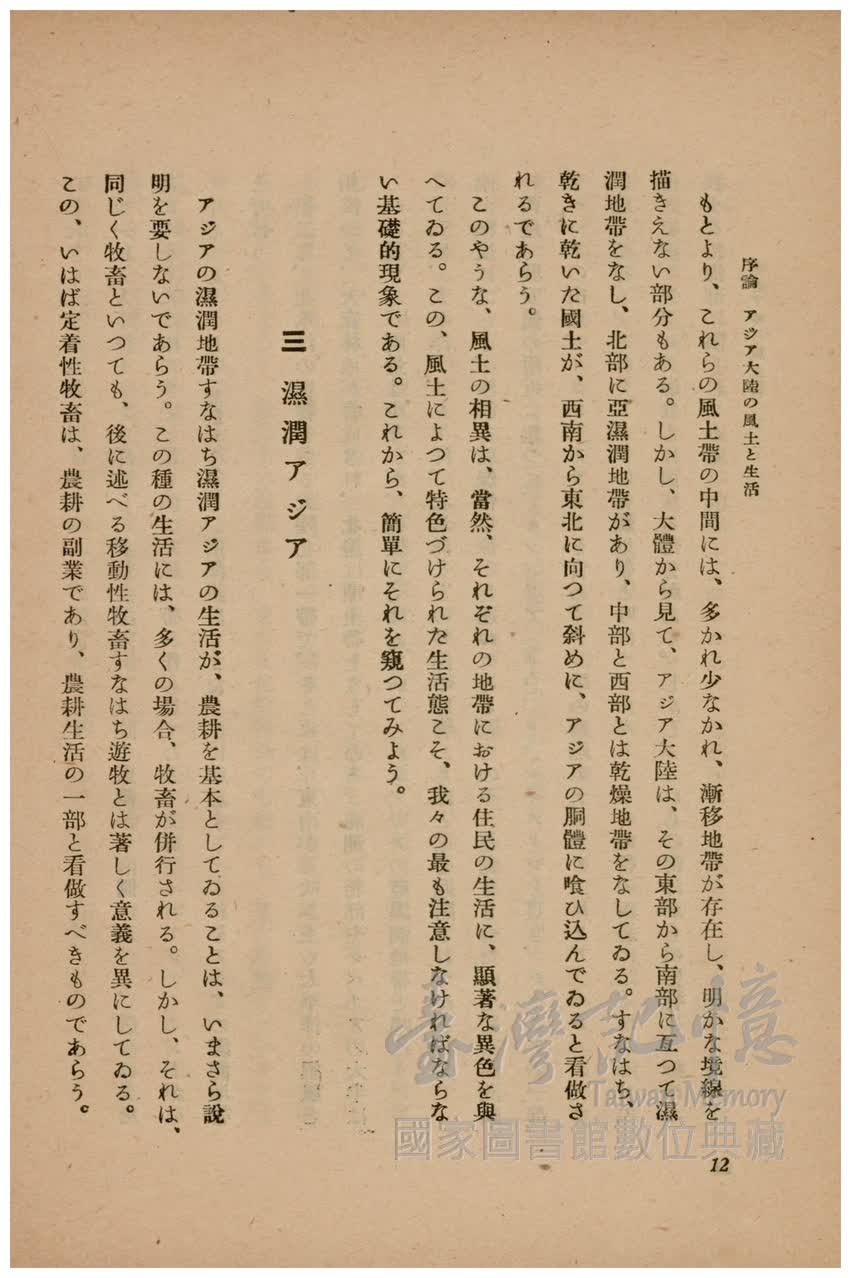 序論　アジア大陸の風土と生活
もとより、これらの風土帶の中間には、多かれ少なかれ、漸移地帶が存在し、明かな境線を
描きえない部分もある。しかし、大體から見て、アジア大陸は、その東部から南部に亙つて濕
潤地帶をなし、北部に亞濕潤地帶があり、中部と西部とは乾燥地帶をなしてゐる。すなはち、
乾きに乾いた國土が、西南から東北に向つて斜めに、アジアの胴體に喰ひ込んでゐると看做さ
れるであらう。
このやうな、風土の相異は、當然、それぞれの地帶における住民の生活に、顯著な異色を與
へてゐる。この、風土によつて特色づけられた生活態こそ、我々の最も注意しなければならな
い基礎的現象である。これから、簡單にそれを窺つてみよう。
三　濕潤アジア
アジアの濕潤地帶すなはち濕潤アジアの生活が、農耕を基本としてゐることは、いまさら說
明を要しないであらう。この種の生活には、多くの場合、牧畜が併行される。しかし、それは、
同じく牧畜といつても、後に述べる移動性牧畜すなはち遊牧とは著しく意義を異にしてゐる。
この、いはば定着性牧畜は、農耕の副業であり、農耕生活の一部と看做すべきものであらう。
12
臺灣記憶
Taiwan Memory
國家圖書館數位典藏